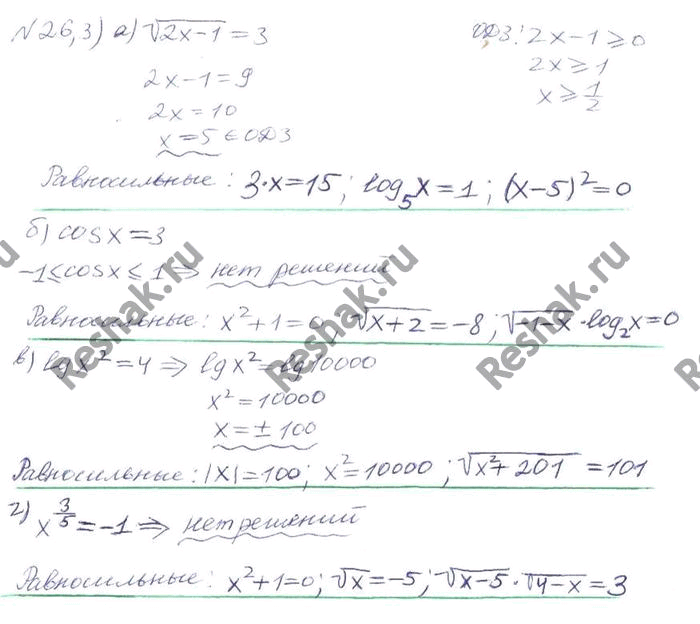 №26,3) а) √(2x-1) = 3
ОДЗ: 2x-1 ≥ 0
2x-1=9
2x ≥ 1
2x=10
x ≥ 1/2
x=5 ∈ ОДЗ
Равносильные: 3·x=15; log₅x=1; (x-5)²=0
б) cosx=3
-1≤cosx≤1 ⇒ нет решений
Равносильные: x²+1=0; √(x+2)=-8; √(-1-x)·log₂x=0
в) lgx²=4 ⇒ lgx²=lg10000
x²=10000
x=±100
Равносильные: |x|=100; x²=10000; √(x²+201)=101
г) x^(3/5)=-1 ⇒ нет решений
Равносильные: x²+1=0; √x=-5; √(x-5)·√(4-x)=3
Reshak.ru
Reshak.ru
Reshak.ru